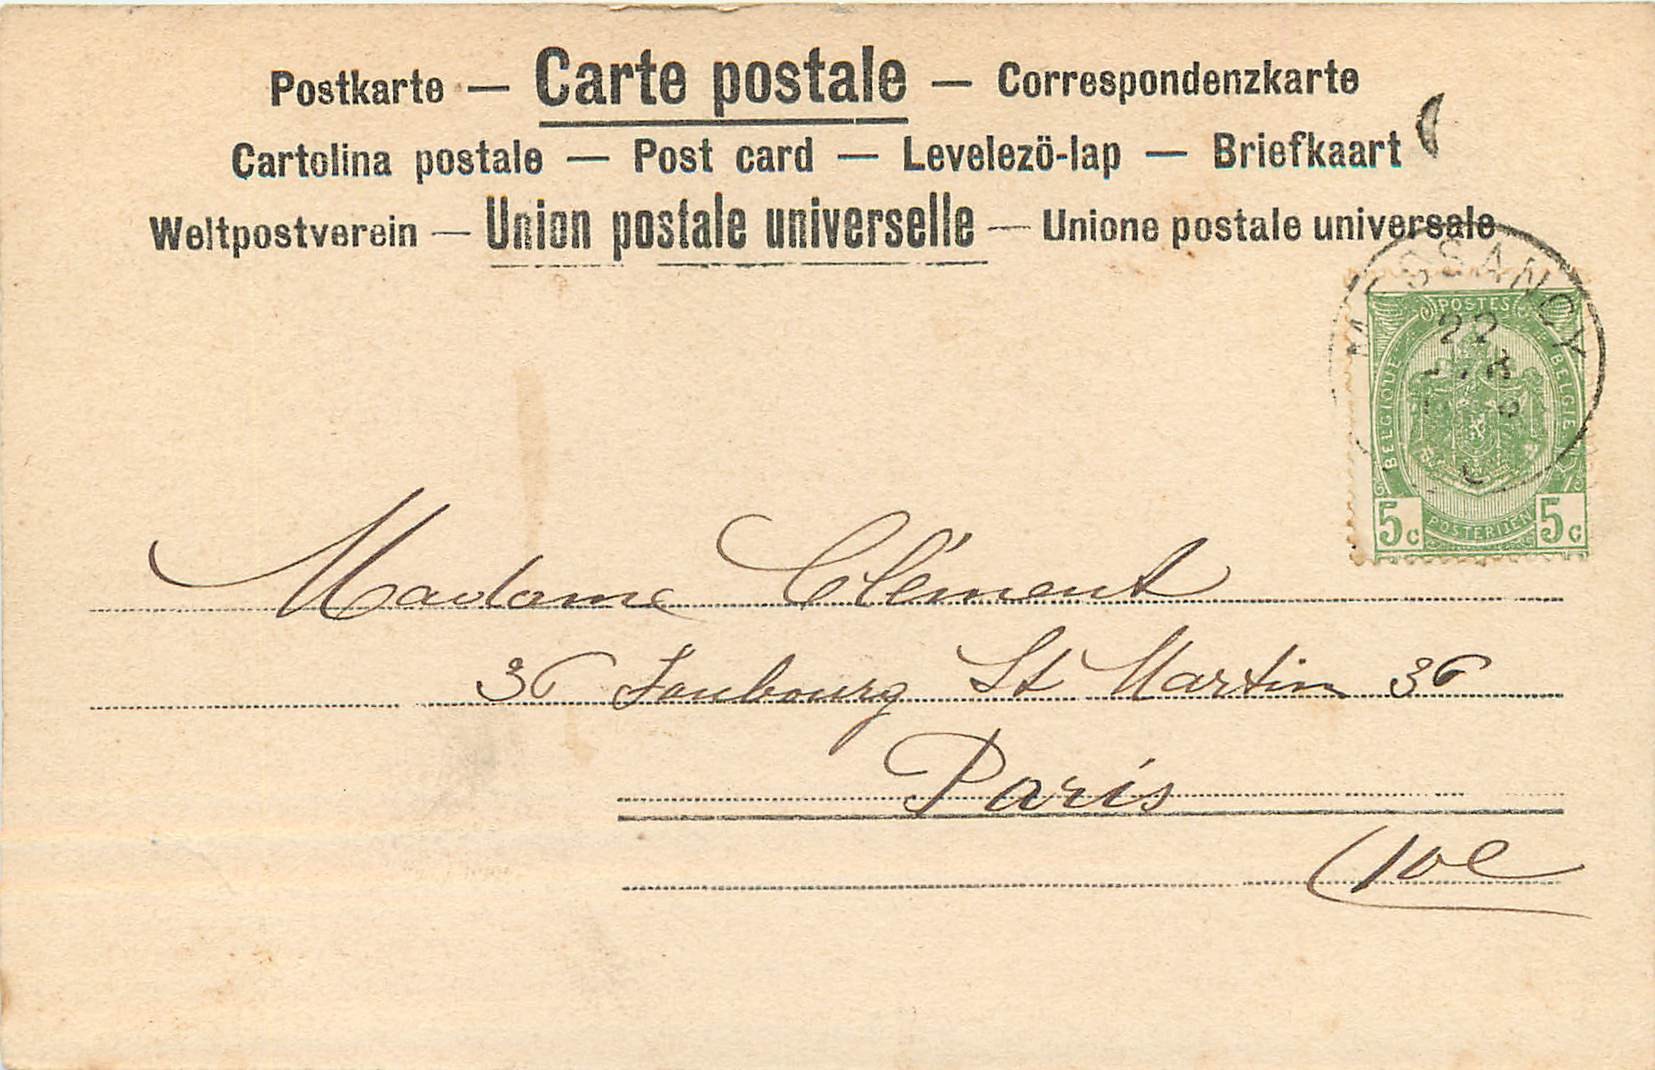 Postkarte — Carte postale — Correspondenzkarte
Cartolina postale — Post card — Levelezö-lap — Briefkaart
Weltpostverein — Union postale universelle — Unione postale universale
MESSANCY
22
POSTES
BELGIQUE
BELGIË
5c POSTERIJEN 5c
Madame Clément
36 Faubourg St Martin 36
Paris
(10e